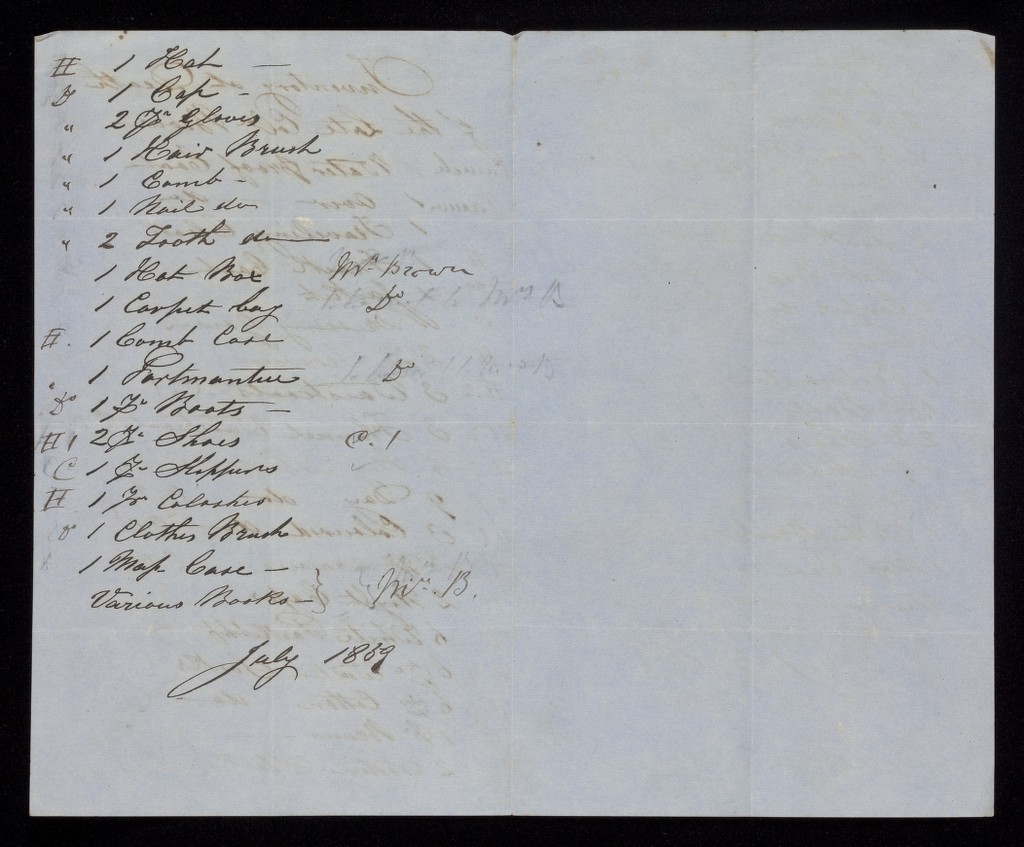 H 1 Hat —
Do 1 Cap —
" 2 Pr Gloves
" 1 Hair Brush
" 1 Comb —
" 1 Nail do
" 2 Tooth do
1 Hat Box Mrs Brown
1 Carpet bag Do Mrs B
H. 1 Comb Case
" 1 Portmantue Do
Do 1 Pr Boots —
H 1 2 Pr Shoes C. 1
C 1 Pr Slippers
H 1 Pr Caloshes
Do 1 Clothes Brush
1 Map Case —
Various Books — } Mrs. B.
July 1859